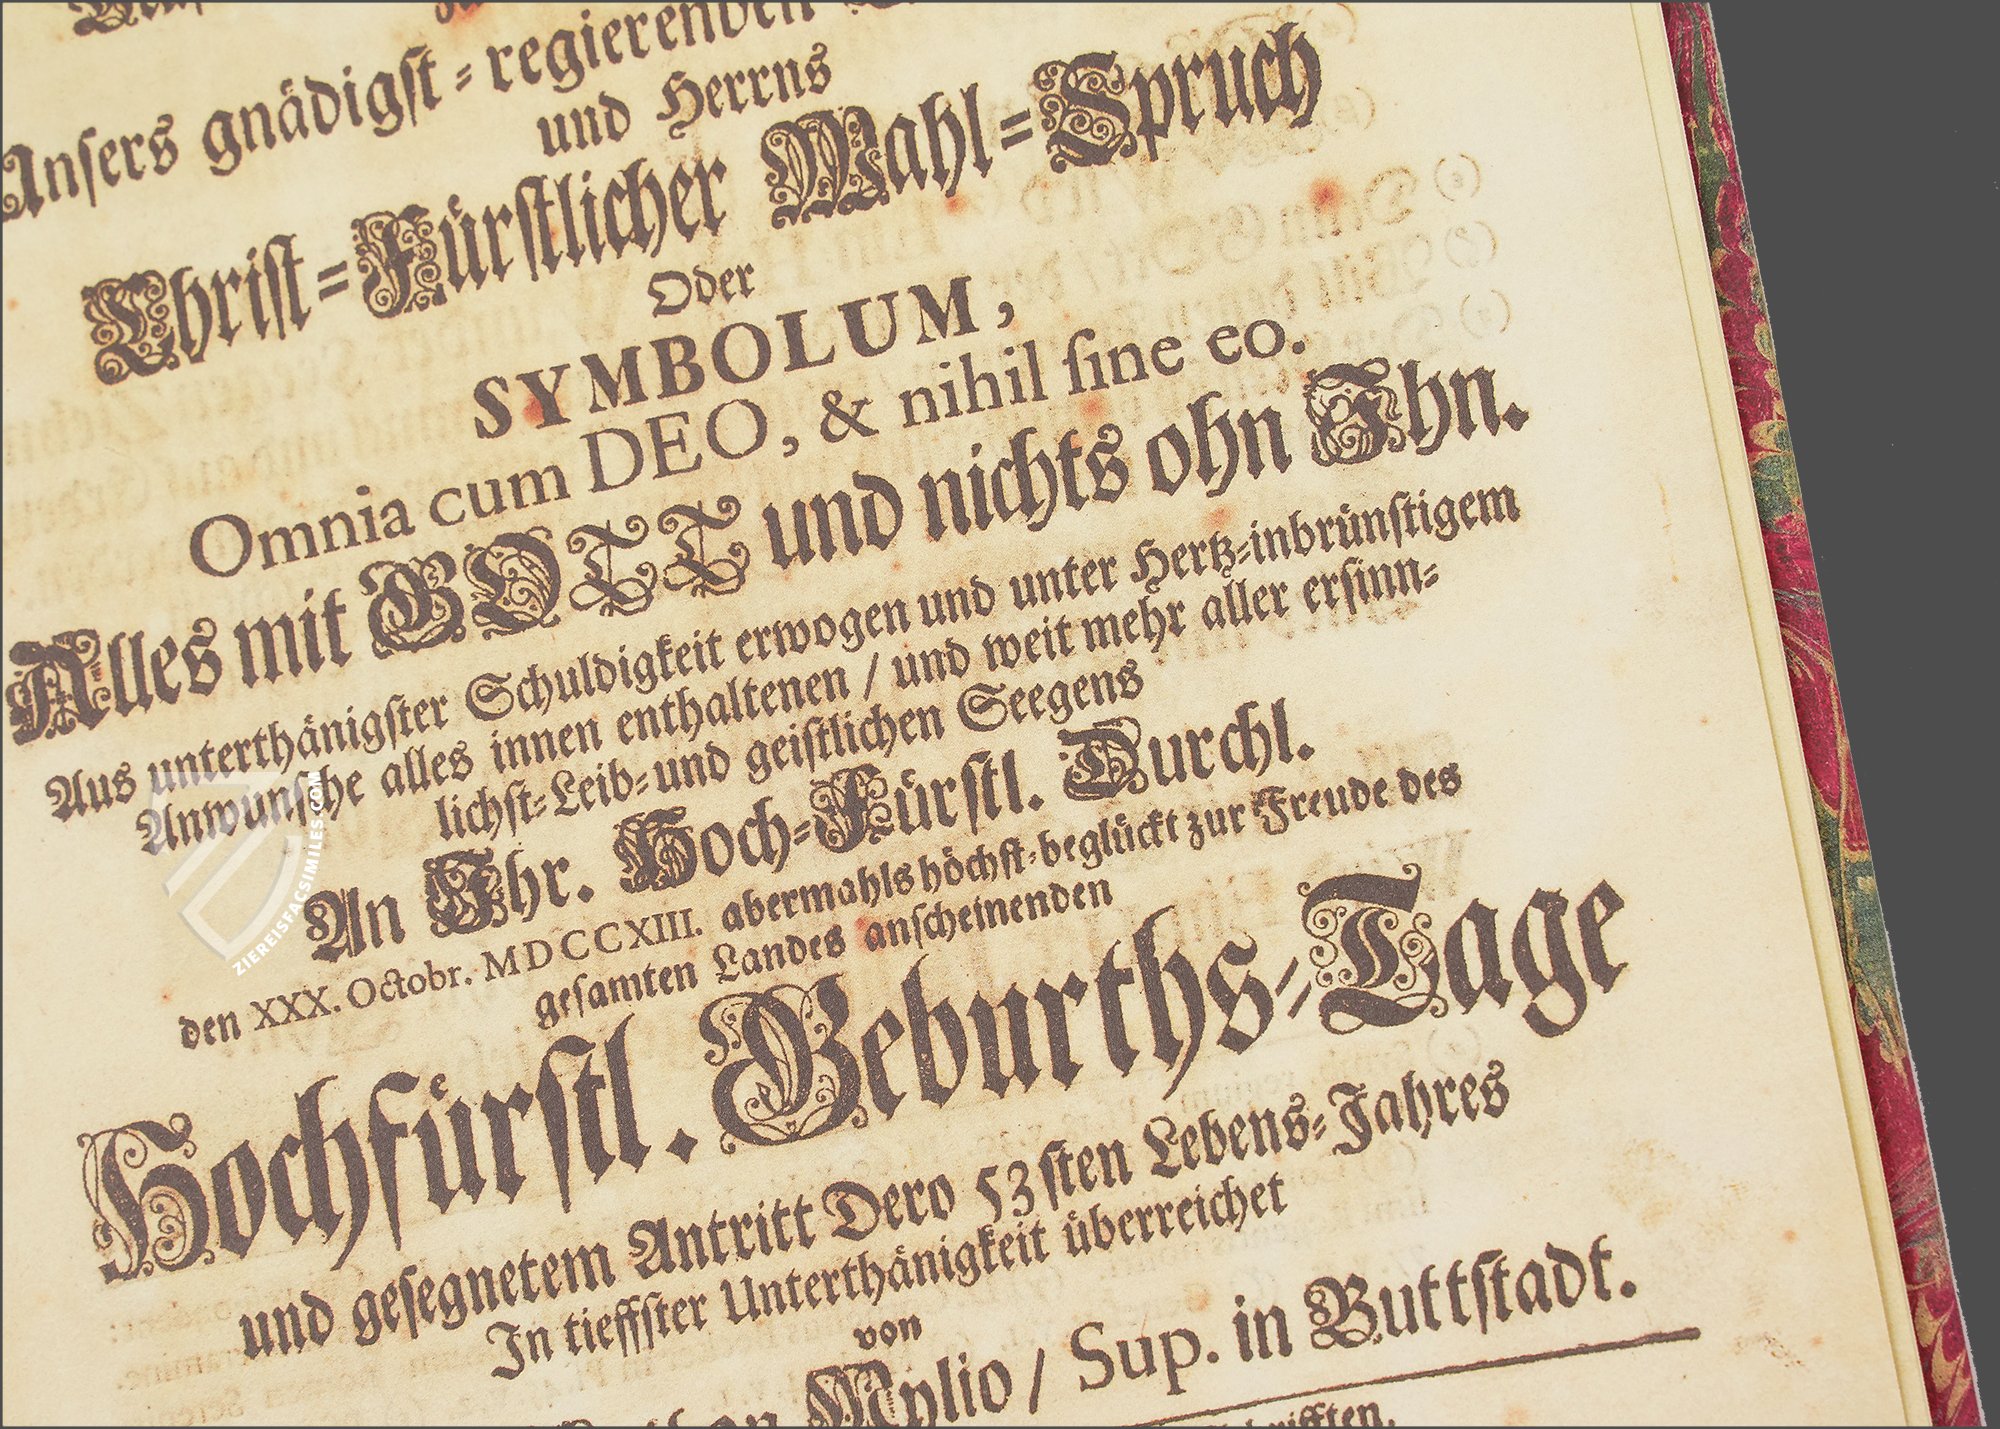 Unsers gnädigst-regierenden
und Herrns
Christ-Fürstlicher Wahl-Spruch
Oder
SYMBOLUM,
Omnia cum DEO, & nihil ſine eo.
Alles mit GOTT und nichts ohn Ihn.
Aus unterthänigſter Schuldigkeit erwogen und unter Hertz-inbrünſtigem
Anwunſche alles innen enthaltenen / und weit mehr aller erſinn-
lichſt-Leib-und geiſtlichen Seegens
An Ihr. Hoch-Fürſtl. Durchl.
den XXX. Octobr. MDCCXIII. abermahls höchſt-beglückt zur Freude des
geſamten Landes anſcheinenden
Hochfürſtl. Geburths-Tage
und geſegnetem Antritt Dero 53ſten Lebens-Jahres
In tieffſter Unterthänigkeit überreichet
von
Mylio / Sup. in Buttſtadt.
ZIEREISFACSIMILES.COM